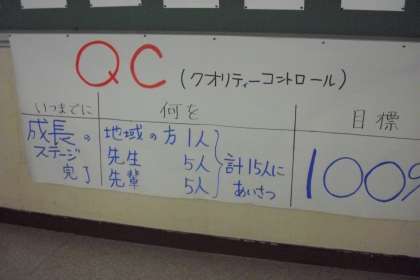 QC (クオリティーコントロール)
いつまでに 何を 目標
成長の 地域の方 1人
ステージ 先生 5人 計15人に 100%
完了 先輩 5人 あいさつ